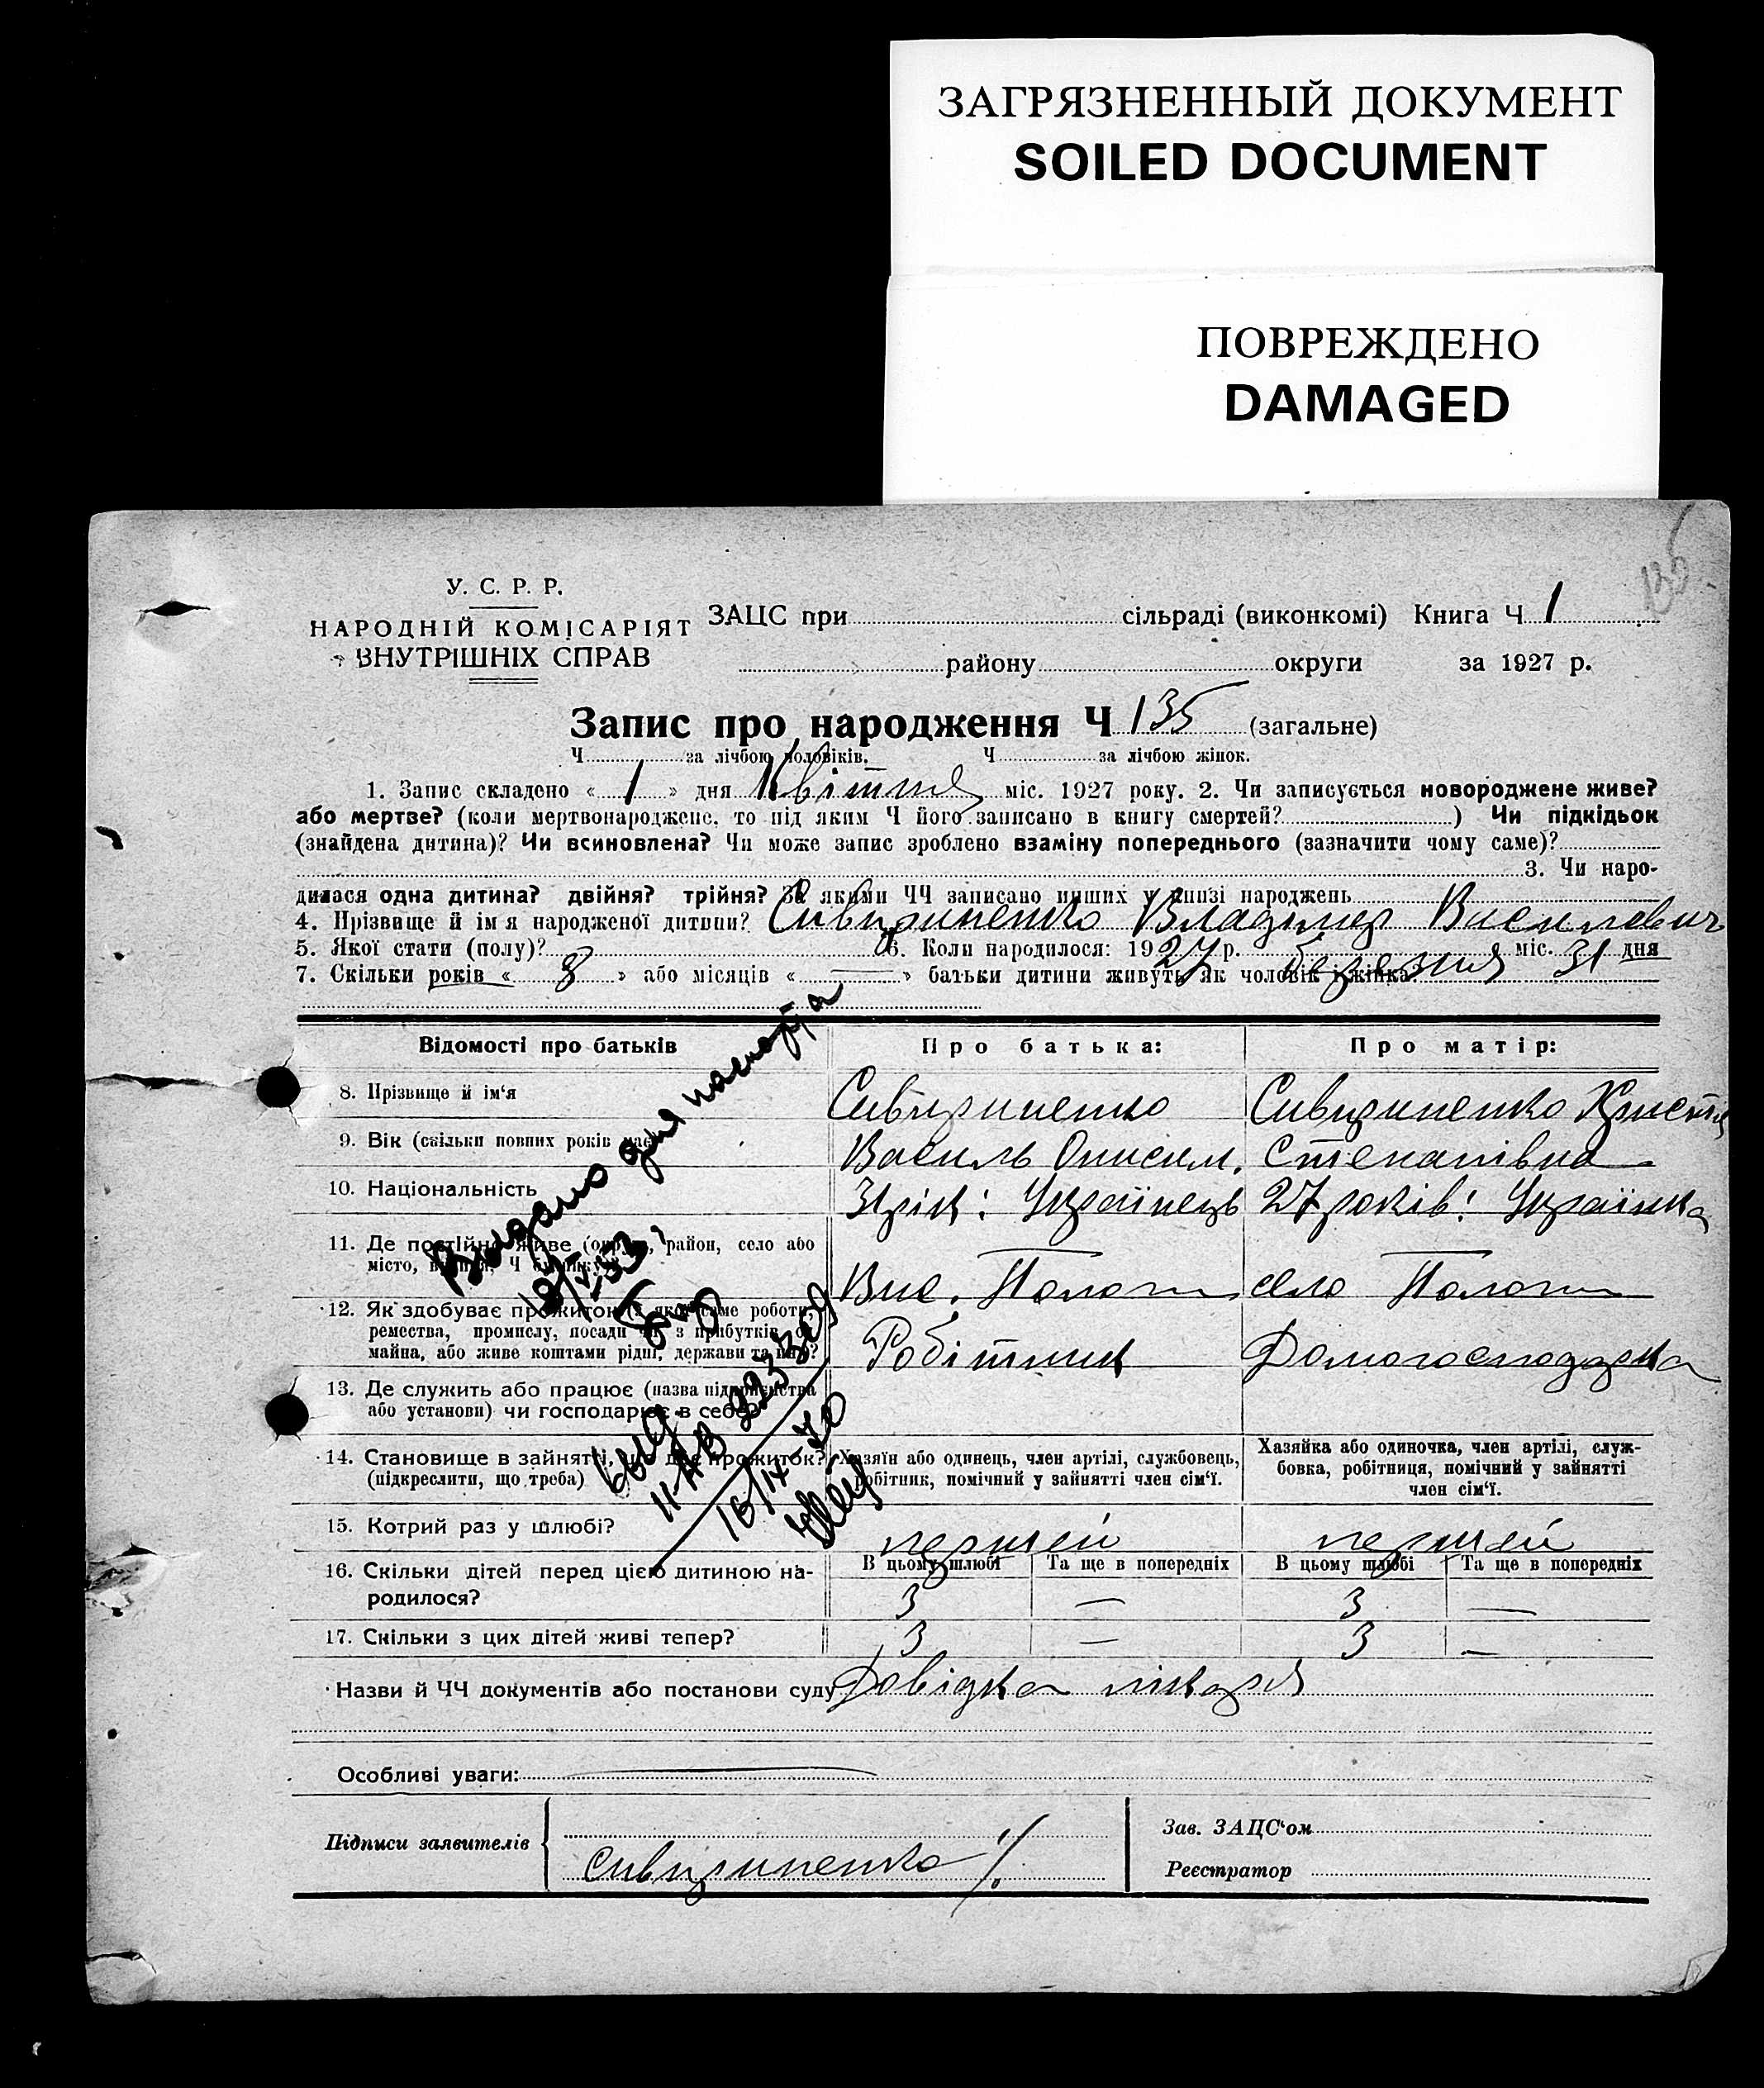 ЗАГРЯЗНЕННЫЙ ДОКУМЕНТ
SOILED DOCUMENT
ПОВРЕЖДЕНО
DAMAGED
135
У. С. Р. Р.
НАРОДНІЙ КОМІСАРІЯТ
ВНУТРІШНІХ СПРАВ
ЗАЦС при сільраді (виконкомі) Книга Ч 1
району округи за 1927 р.
Запис про народження Ч 135 (загальне)
Ч за лічбою чоловіків. Ч за лічбою жінок.
1. Запис складено « 1 » дня Квітня міс. 1927 року. 2. Чи записується новороджене живе?
або мертве? (коли мертвонароджене, то під яким Ч його записано в книгу смертей? ) Чи підкідьок
(знайдена дитина)? Чи всиновлена? Чи може запис зроблено взаміну попереднього (зазначити чому саме)?
3. Чи наро-
дилася одна дитина? двійня? трійня? За якими ЧЧ записано инших у книзі народжень
4. Прізвище й ім'я народженої дитини? Сивириненко Владимер Василевич
5. Якої стати (полу)? 6. Коли народилося: 1927 р. березня міс. 31 дня
7. Скільки років « 8 » або місяців « — » батьки дитини живуть як чоловік і жінка?
Відомості про батьків Про батька: Про матір:
8. Прізвище й ім'я Сивириненко Сивириненко Христя
9. Вік (скільки повних років має) Василь Онисим. Степанівна
10. Національність 31 рік: Українець 27 років: Українка
11. Де постійно живе (округа, район, село або
місто, вулиця, Ч будинку)? Вис. Пологи село Пологи
12. Як здобуває прожиток (з якої саме роботи,
ремества, промислу, посади чи з прибутків од
майна, або живе коштами рідні, держави та инш)? Робітник Домогосподарка
13. Де служить або працює (назва підприємства
або установи) чи господарює в себе?
14. Становище в зайнятті, що дає прожиток?
(підкреслити, що треба)
Хазяїн або одинець, член артілі, службовець,
робітник, помічний у зайнятті член сім'ї.
Хазяйка або одиночка, член артілі, служ-
бовка, робітниця, помічний у зайнятті
член сім'ї.
15. Котрий раз у шлюбі? першей першей
В цьому шлюбі Та ще в попередніх В цьому шлюбі Та ще в попередніх
16. Скільки дітей перед цією дитиною на-
родилося? 3 — 3 —
17. Скільки з цих дітей живі тепер? 3 — 3 —
Назви й ЧЧ документів або постанови суду Довідка лікаря
Особливі уваги:
Підписи заявителів
Сивириненко
Зав. ЗАЦС'ом
Реєстратор
Выдано для паспорта
выд.
II-АВ 293309
16/IX-70